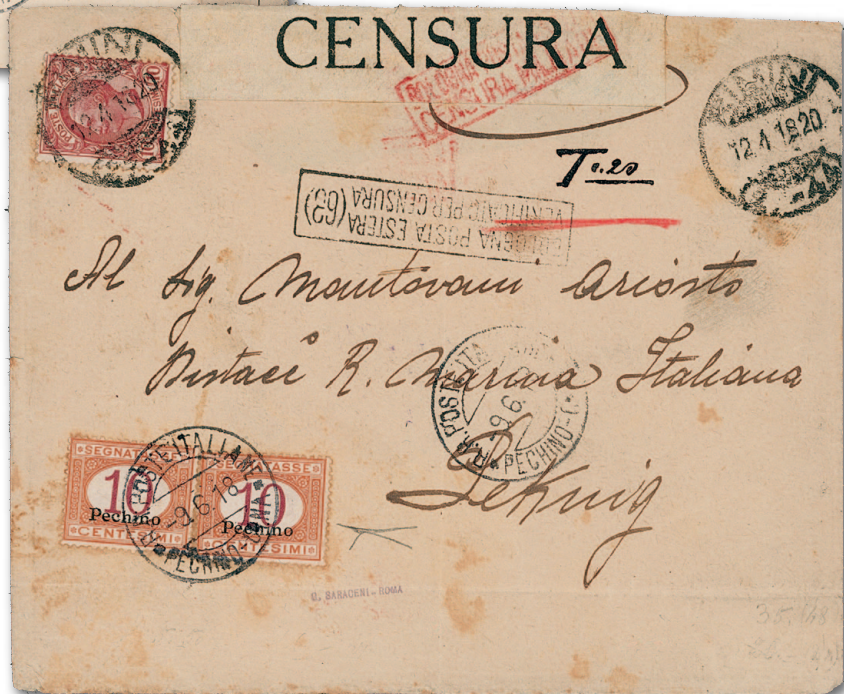 CENSURA
BOLOGNA
CENSURA
RIMINI
12.4.18 20
12.4.18 20
T 0.20
BOLOGNA POSTA ESTERA (63)
VERIFICATO PER CENSURA
Al Sig. Mantovani Ariosto
Distacc R. Marina Italiana
Peking
R.R. POSTE ITA
9.6.
PECHINO
SEGNATASSE
10
Pechino
CENTESIMI
10
Pechino
CENTESIMI
R.R. POSTE ITALIANE
-9.6.18
PECHINO (CINA)
G. SARACENI - ROMA